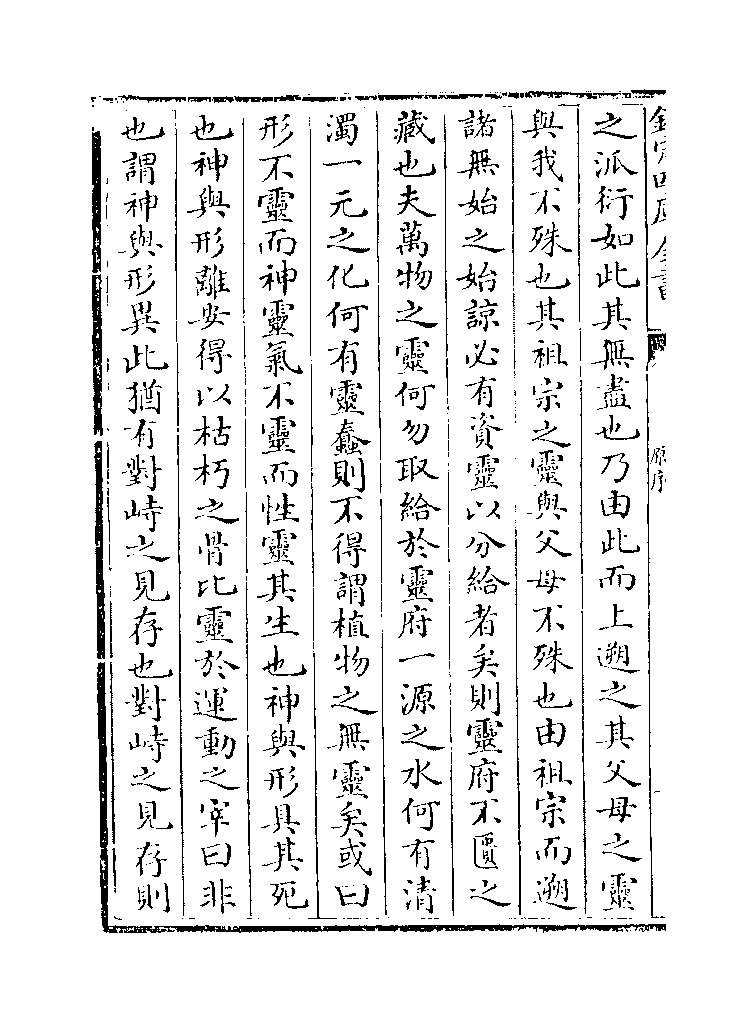 欽定四庫全書
原序
之派衍如此其無盡也乃由此而上遡之其父母之靈
與我不殊也其祖宗之靈與父母不殊也由祖宗而遡
諸無始之始諒必有資靈以分給者矣則靈府不匱之
藏也夫萬物之靈何勿取給於靈府一源之水何有清
濁一元之化何有靈蠢則不得謂植物之無靈矣或曰
形不靈而神靈氣不靈而性靈其生也神與形具其死
也神與形離安得以枯朽之骨比靈於運動之宰曰非
也謂神與形異此猶有對峙之見存也對峙之見存則